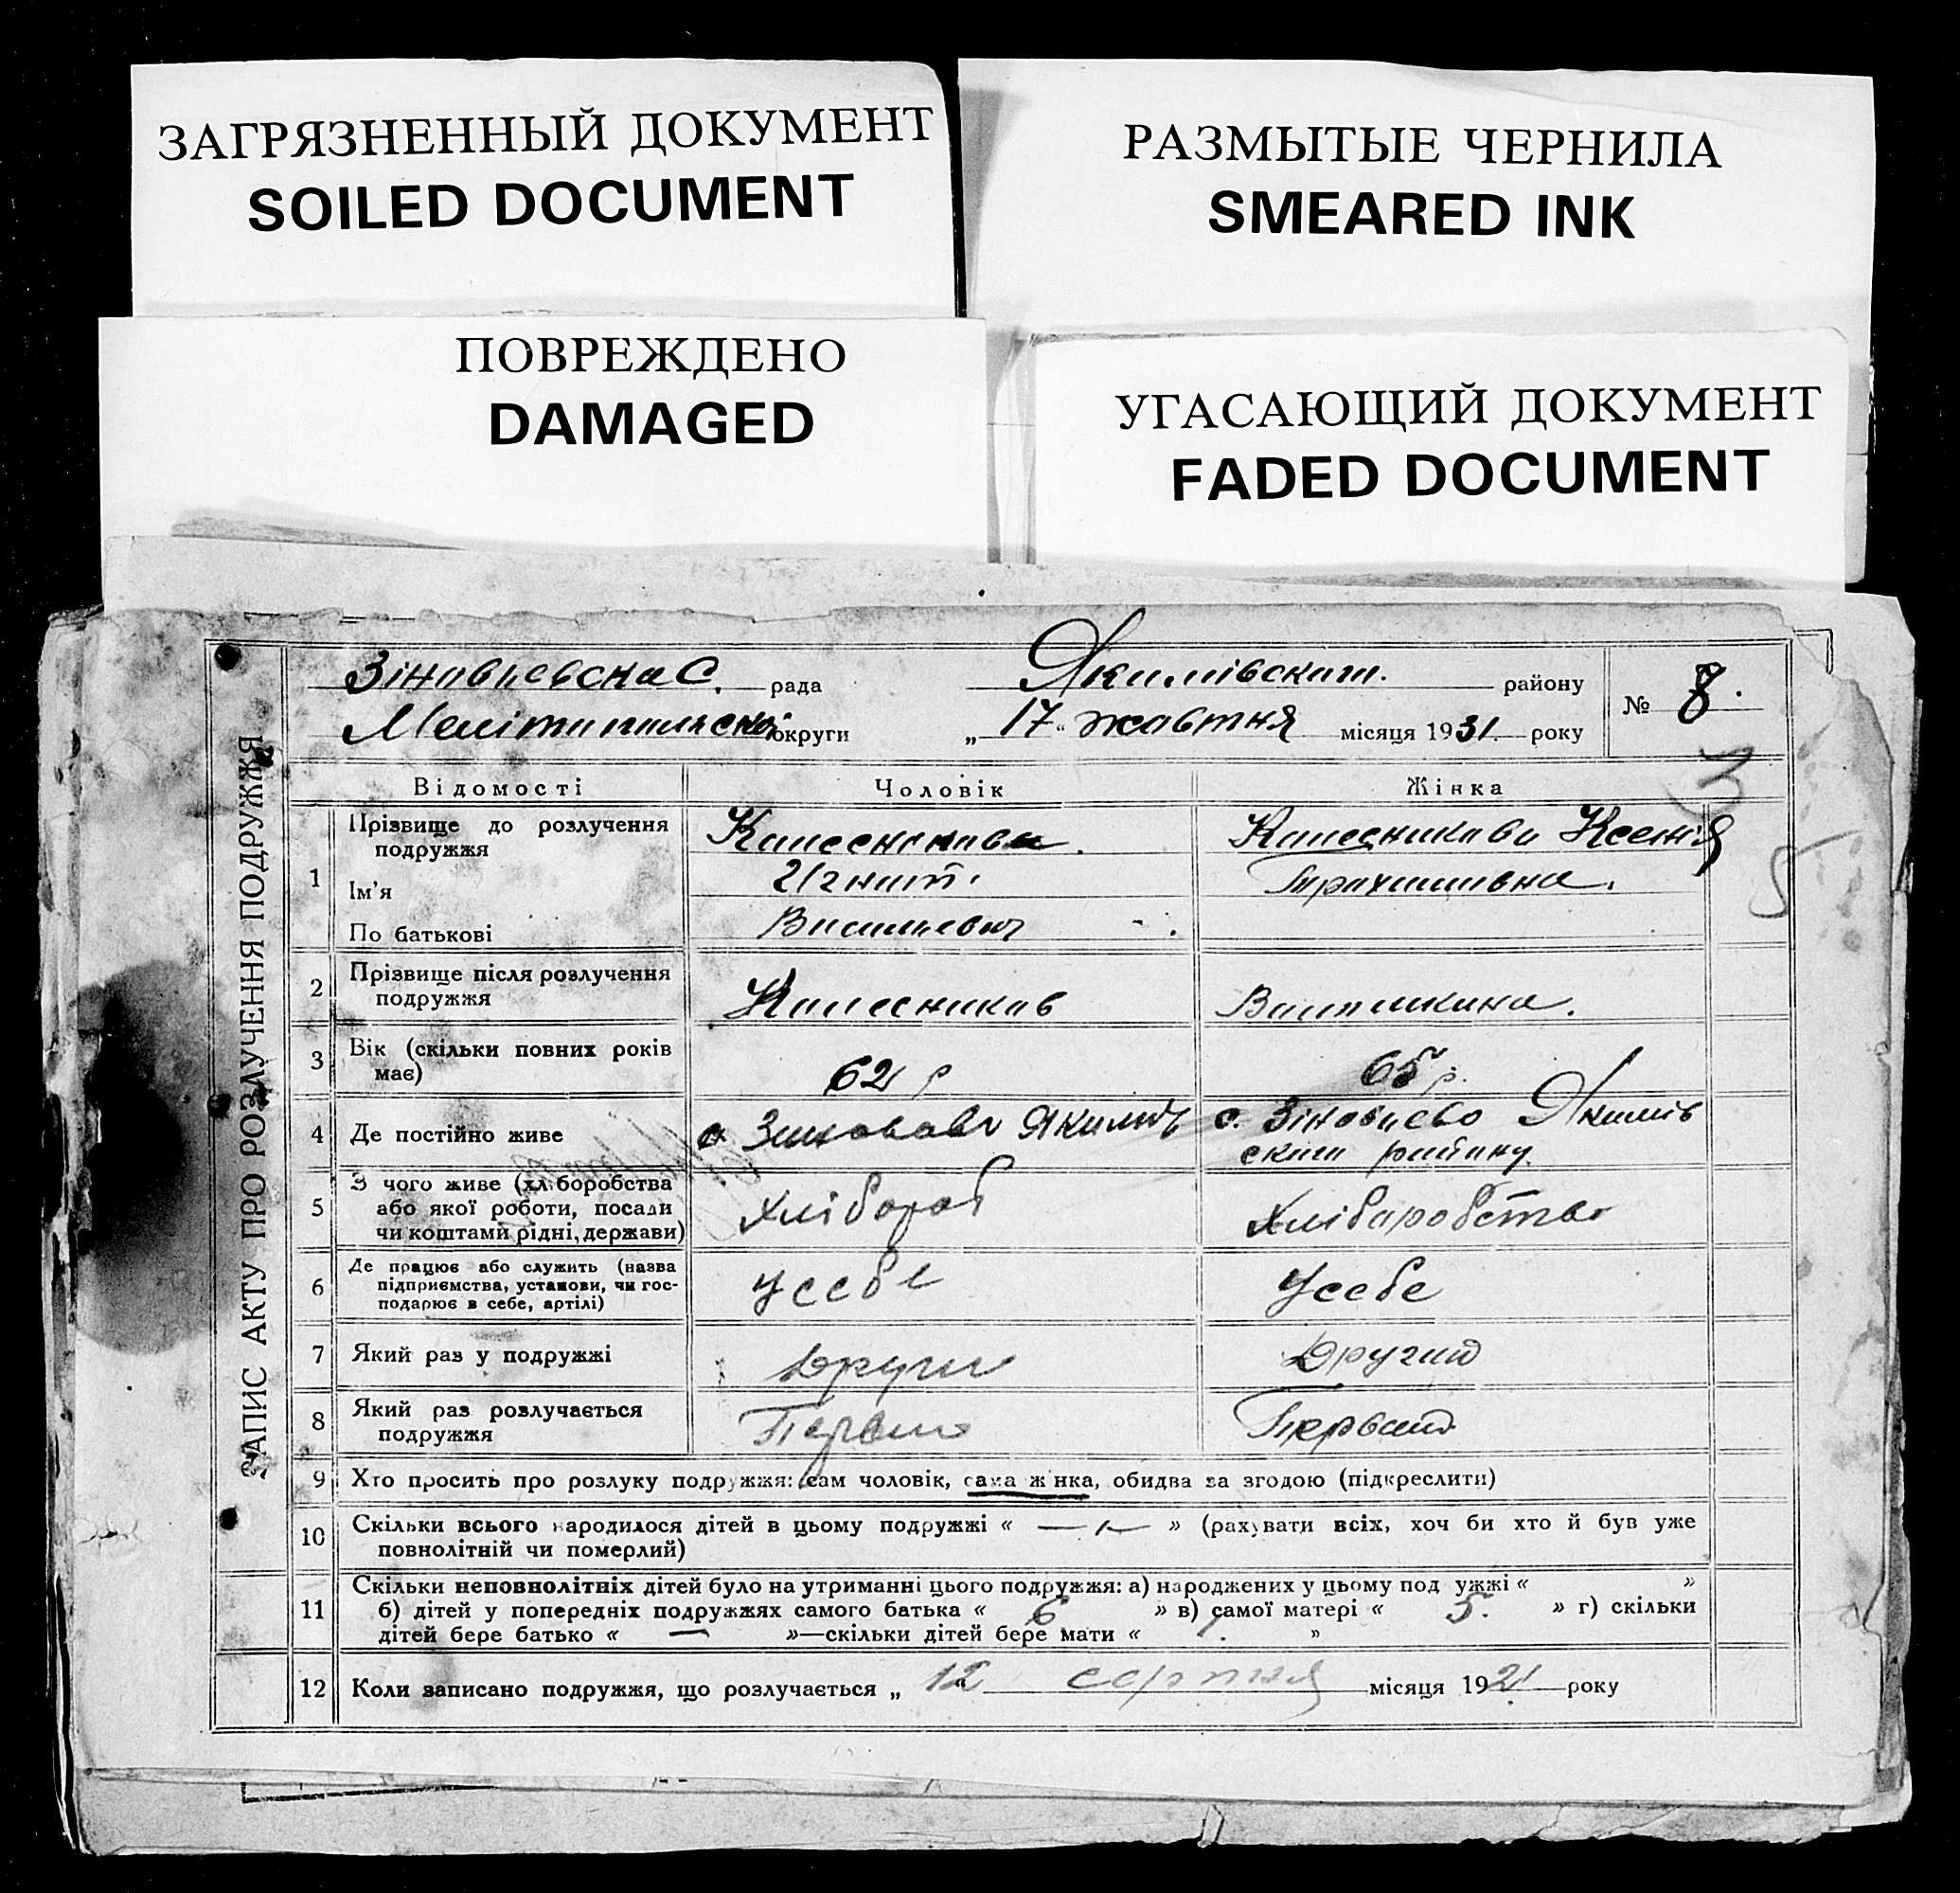 ЗАГРЯЗНЕННЫЙ ДОКУМЕНТ
SOILED DOCUMENT
РАЗМЫТЫЕ ЧЕРНИЛА
SMEARED INK
ПОВРЕЖДЕНО
DAMAGED
УГАСАЮЩИЙ ДОКУМЕНТ
FADED DOCUMENT
ЗАПИС АКТУ ПРО РОЗЛУЧЕННЯ ПОДРУЖЖЯ
Зіновьевска С. рада Якимівского району
Мелітопильской округи „ 17 “ жовтня місяця 1931 року
№ 8.
Відомості Чоловік Жінка
1 Прізвище до розлучення подружжя Колесников Колесникова Ксенія
Ім’я Игнат. Трахимивна.
По батькові Василиевич
2 Прізвище після розлучення
подружжя Колесников Волошкина.
3 Вік (скільки повних років
має) 62 р 65 р.
4 Де постійно живе Якимів с. Зіновьево Якимів
ского району
5 З чого живе (хліборобства Хлібороб Хліборобство
або якої роботи, посади
чи коштами рідні, держави)
6 Де працює або служить (назва
підприємства, установи, чи гос-
подарює в себе, артілі) Усебе Усебе
7 Який раз у подружжі Други Другий
8 Який раз розлучається
подружжя Первий Первий
9 Хто просить про розлуку подружжя: сам чоловік, сама жінка, обидва за згодою (підкреслити)
10 Скільки всього народилося дітей в цьому подружжі « — » (рахувати всіх, хоч би хто й був уже
повнолітній чи померлий)
11 Скільки неповнолітніх дітей було на утриманні цього подружжя: а) народжених у цьому подружжі « »
б) дітей у попередніх подружжях самого батька « 6 » в) самої матері « 5. » г) скільки
дітей бере батько « — »—скільки дітей бере мати « »
12 Коли записано подружжя, що розлучається „ 12 серпня місяця 1921 року